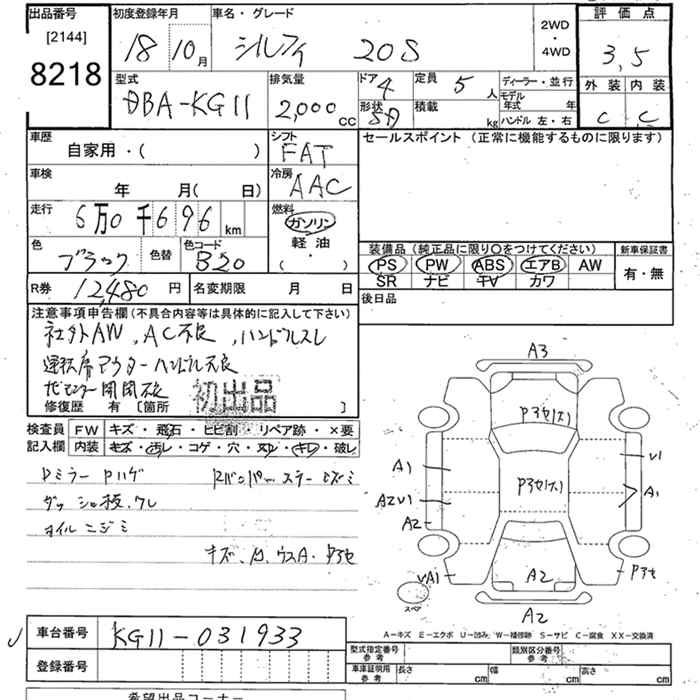 出品番号 初度登録年月 車名・グレード 2WD・4WD 評価点
[2144]
8218 18 10月 シルフィ 20S 3,5
型式 排気量 ドア 4 定員 5人 ディーラー・並行 外装 内装
DBA-KG11 2,000cc 形状 SD 積載 kg モデル年式 年 C C
ハンドル 左・右
車歴 シフト セールスポイント(正常に機能するものに限ります)
自家用・( ) FAT
車検 冷房
年 月( 日) AAC
走行 燃料
6万0千696km ガソリン
軽油
( ・ )
色 色替 色コード 装備品(純正品に限り○をつけてください) 新車保証書
ブラック B20 PS PW ABS エアB AW 有・無
SR ナビ TV カワ
R券 12,480円 名変期限 月 日 後日品
注意事項申告欄(不具合内容等は具体的に記入して下さい)
社外AW,AC不良,ハンドルスレ
運転席アウターハンドル不良
初出品
修復歴 有 [箇所 ]
検査員 FW キズ・飛石・ヒビ割 リペア跡・×要
記入欄 内装 キズ・汚レ・コゲ・穴・スレ・キレ・破レ
オイルニジミ
A3
A1 V1 A1
A2V1
A2
VA1 A2
スペア A2
A-キズ E-エクボ U-凹み W-補修跡 S-サビ C-腐食 XX-交換済
車台番号 KG11-031933
登録番号
型式指定番号 参考 類別区分番号 参考
車車証明用 参考 長さ cm 幅 cm 高さ cm
希望出品コーナー